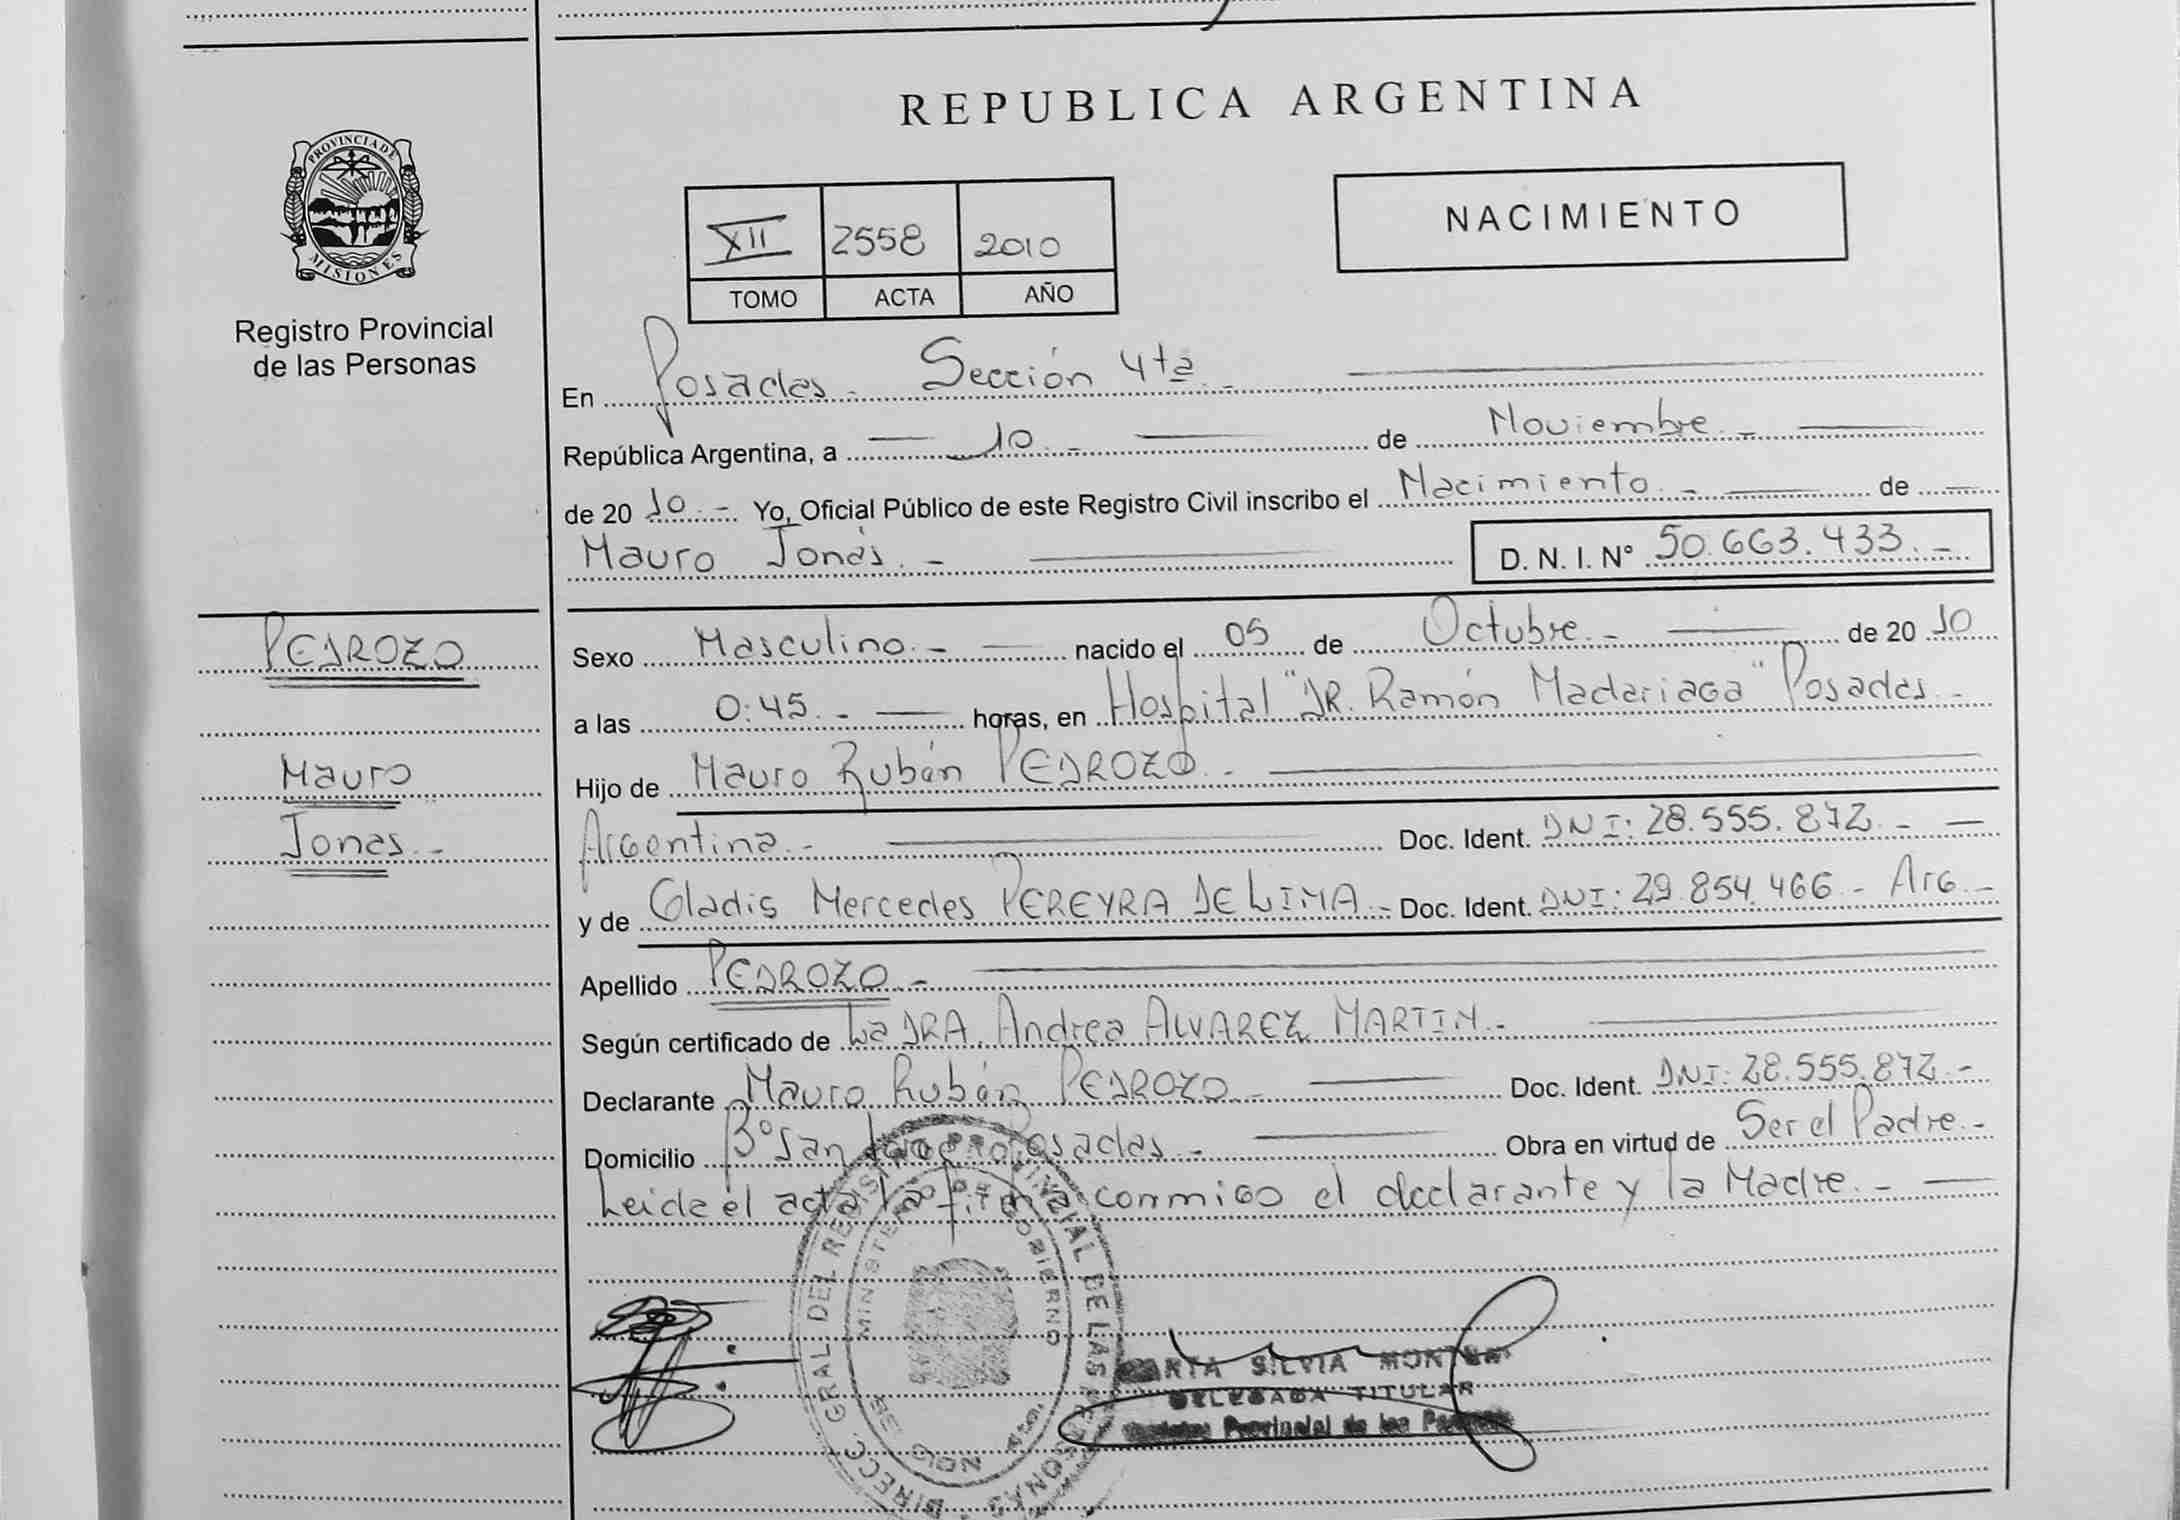 REPUBLICA ARGENTINA
PROVINCIA DE
MISIONES
Registro Provincial
de las Personas
XII 2558 2010
TOMO ACTA AÑO
NACIMIENTO
En Posadas.- Sección 4ta.-
República Argentina, a 10.- de Noviembre.-
de 20 10.- Yo, Oficial Público de este Registro Civil inscribo el Nacimiento.- de
Mauro Jonás.- D. N. I. N° 50.663.433.-
PEDROZO
Mauro
Jonas.-
Sexo Masculino.- nacido el 05 de Octubre.- de 20 10
a las 0:45.- horas, en Hospital "DR. Ramón Madariaga" Posadas.-
Hijo de Mauro Rubén PEDROZO.-
Argentina.- Doc. Ident. DNI: 28.555.872.-
y de Gladis Mercedes PEREYRA DE LIMA.- Doc. Ident. DNI: 29.854.466.- Arg.-
Apellido PEDROZO.-
Según certificado de La DRA. Andrea ALVAREZ MARTIN.-
Declarante Mauro Rubén PEDROZO.- Doc. Ident. DNI: 28.555.872.-
Domicilio B° San Posadas.- Obra en virtud de Ser el Padre.-
Leida el acta la firma conmigo el declarante y la Madre.-
DIRECC. GRAL. DEL REGIST PROVINCIAL DE LAS PERSONAS
MINISTE DE GOBIERNO
SILVIA
DELEGADA TITULAR
Provincial de las